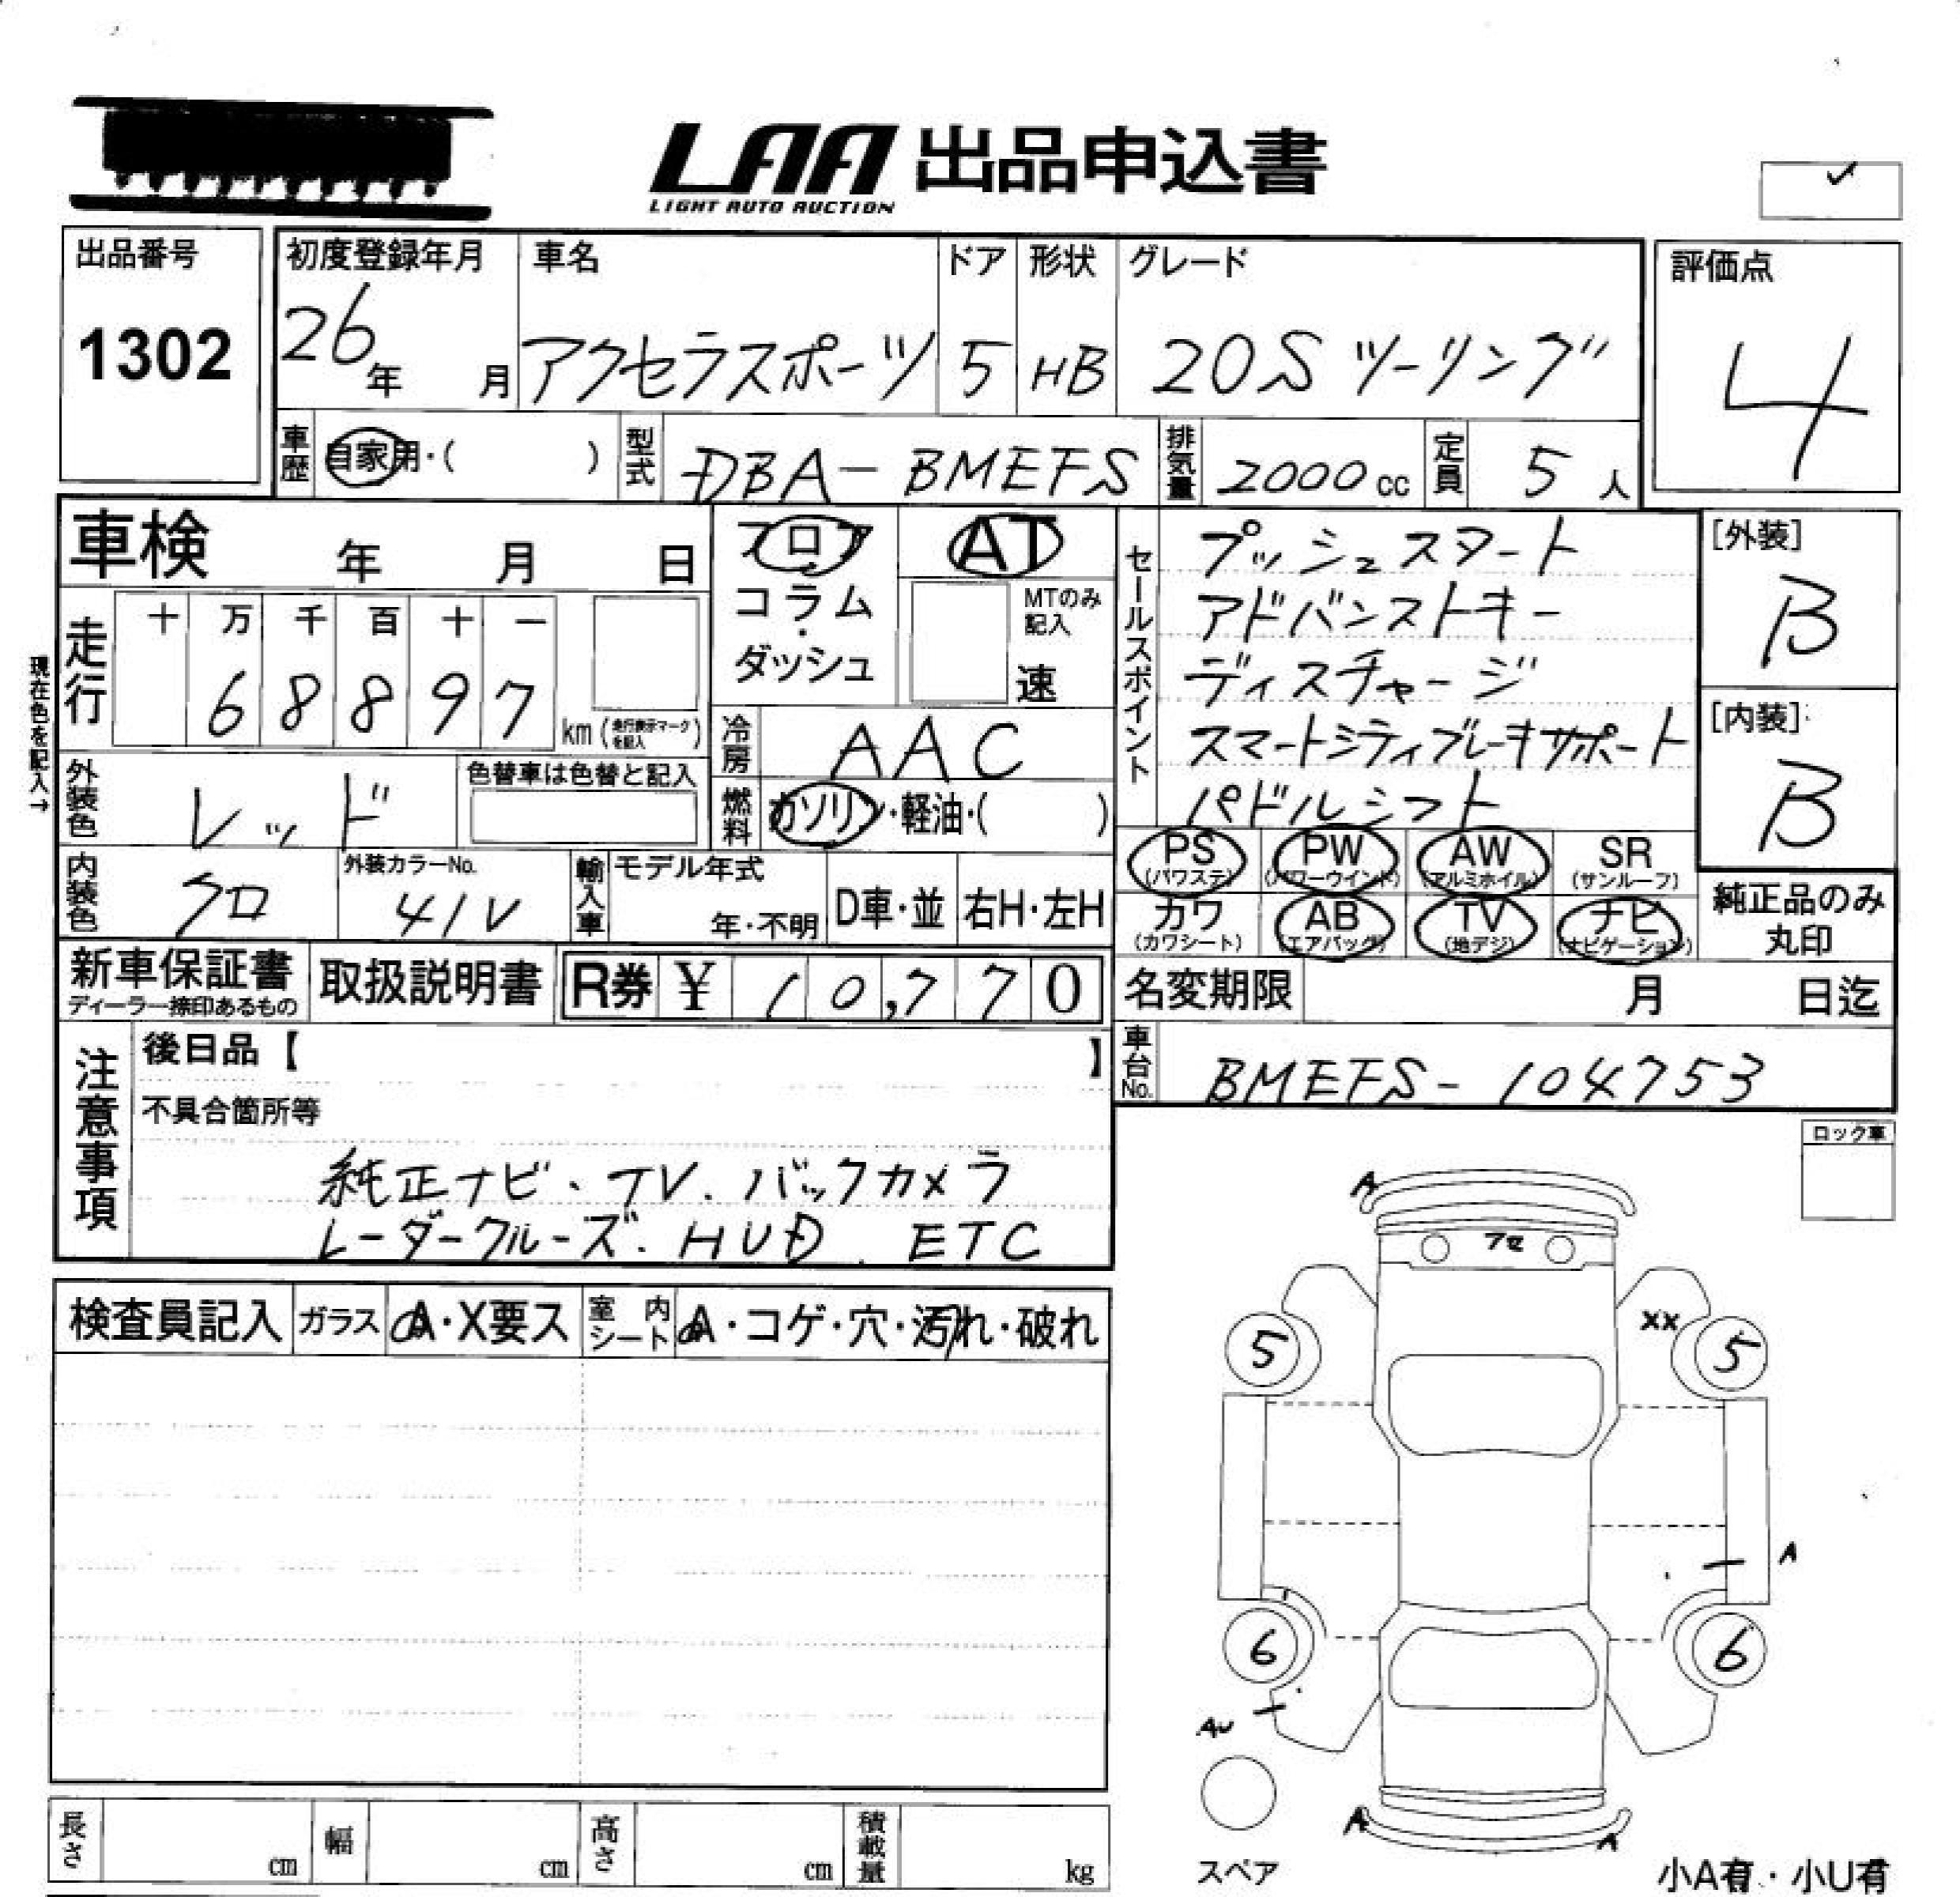 LAA 出品申込書
LIGHT AUTO AUCTION
出品番号
1302
初度登録年月 車名 ドア 形状 グレード
26年 月 アクセラスポーツ 5 HB 20S ツーリング
評価点
4
車歴 自家用・( ) 型式 DBA-BMEFS 排気量 2000cc 定員 5人
車検 年 月 日
フロア
コラム
・
ダッシュ
AT
MTのみ
記入
速
セールスポイント
プッシュスタート
アドバンストキー
ディスチャージ
スマートシティブレーキサポート
パドルシフト
[外装]
B
[内装]
B
現在色を記入→
走行
十 万 千 百 十 一
6 8 8 9 7 km (走行表示マークを記入)
冷房 AAC
外装色 レッド
色替車は色替と記入
燃料 ガソリン・軽油・( )
PS (パワステ) PW (パワーウインド) AW (アルミホイル) SR (サンルーフ)
カワ (カワシート) AB (エアバッグ) TV (地デジ) ナビ (ナビゲーション)
純正品のみ
丸印
内装色 クロ
外装カラーNo.
41V
輸入車 モデル年式
年・不明 D車・並 右H・左H
新車保証書
ディーラー捺印あるもの
取扱説明書
R券 ¥ 10,770
名変期限 月 日迄
車台No. BMEFS-104753
注意事項
後日品【 】
不具合箇所等
純正ナビ、TV、バックカメラ
レーダークルーズ、HUD、ETC
ロック車
検査員記入 ガラス A・X要ス 室内シート A・コゲ・穴・汚れ・破れ
A
フセ
XX
5 5
A
6 6
AU
A A
スペア
小A有・小U有
長さ cm 幅 cm 高さ cm 積載量 kg